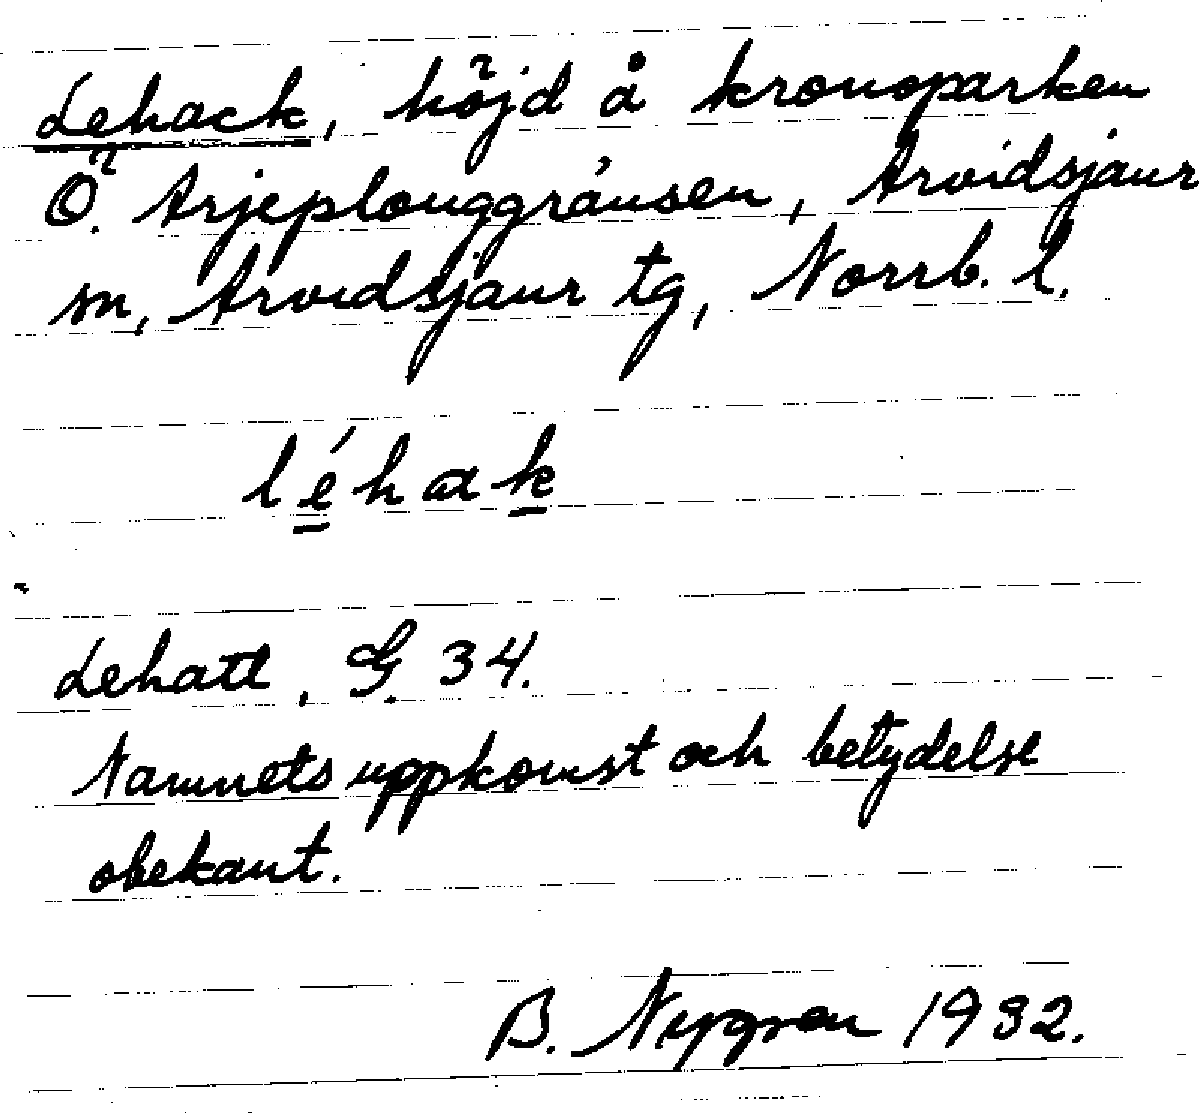 Lehack, höjd å kronoparken
Ö. Arjeplouggränsen, Arvidsjaur
sn, Arvidsjaur tg, Norrb. l.
léhak
Lehatt, G. 34.
Namnets uppkomst och betydelse
obekant.
B. Nygren 1932.